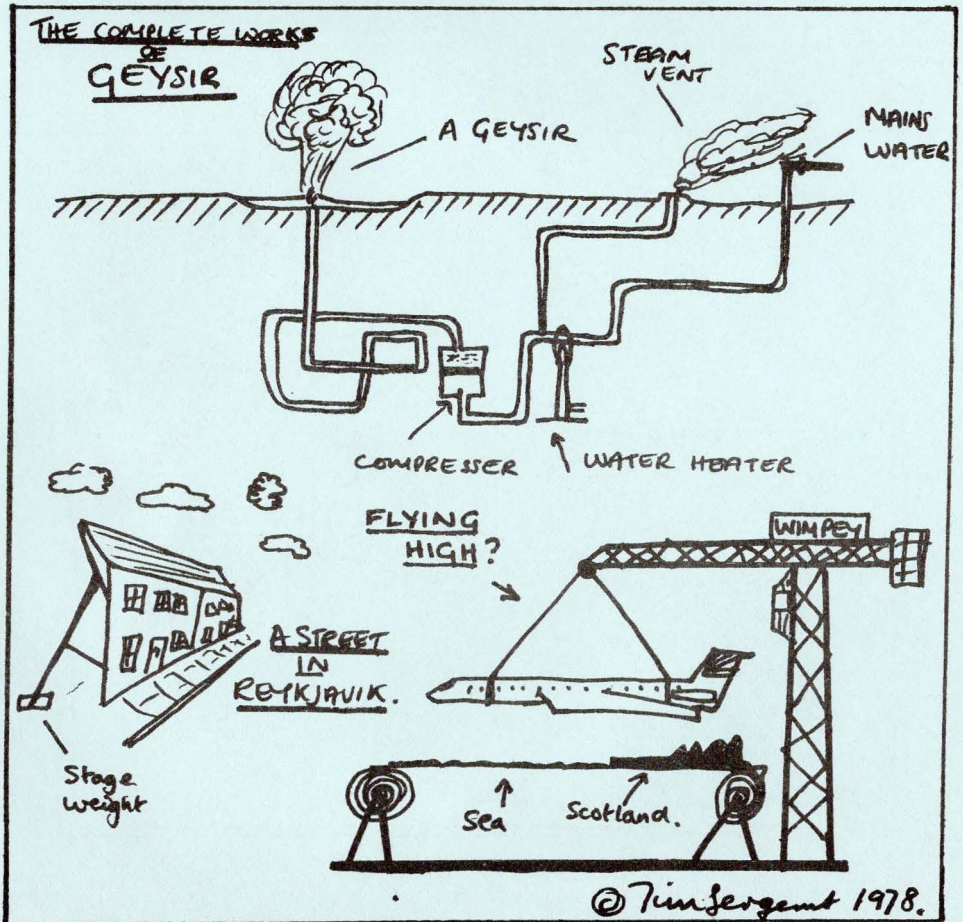 THE COMPLETE WORKS
OF
GEYSIR
A GEYSIR
STEAM
VENT
MAINS
WATER
COMPRESSER
WATER HEATER
FLYING
HIGH?
WIMPEY
A STREET
IN
REYKJAVIK.
Stage
weight
Sea
Scotland.
© Tim Sergeant 1978.